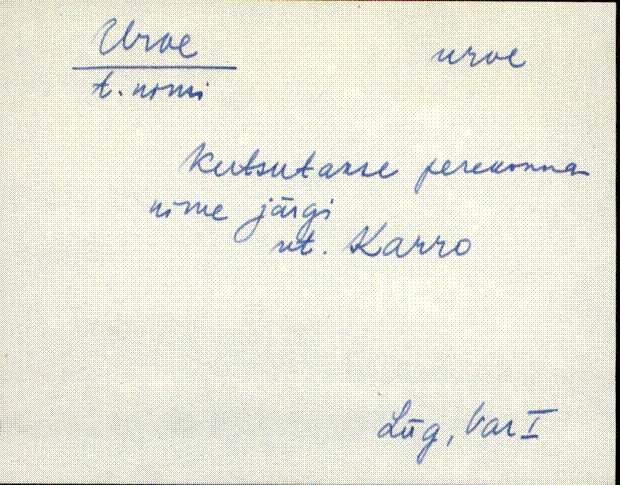 Urve urve
t. nimi
Kutsutakse perekonna
nime järgi
vt. Karro
Lüg, Var I